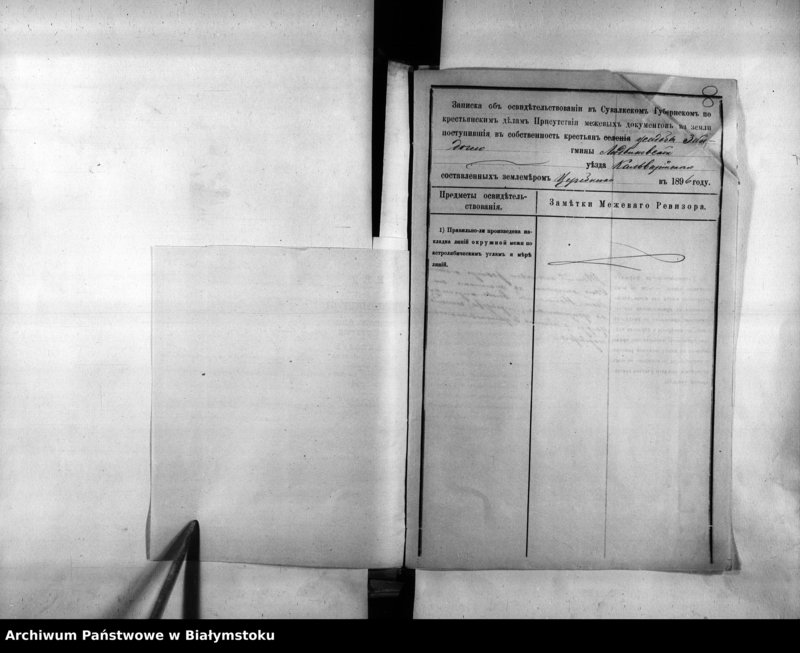 8
Записка объ освидѣтельствованіи въ Сувалкскомъ Губернскомъ по
крестьянскимъ дѣламъ Присутствіи межевыхъ документовъ на земли
поступившія въ собственность крестьянъ селенія
гмины
уѣзда Кальварійскаго
составленныхъ землемѣромъ въ 1896 году.
Предметы освидѣтель-
ствованія.
Замѣтки Межеваго Ревизора.
1) Правильно-ли произведена на-
кладка линій окружной межи по
астролябическимъ угламъ и мѣрѣ
линій.
Archiwum Państwowe w Białymstoku